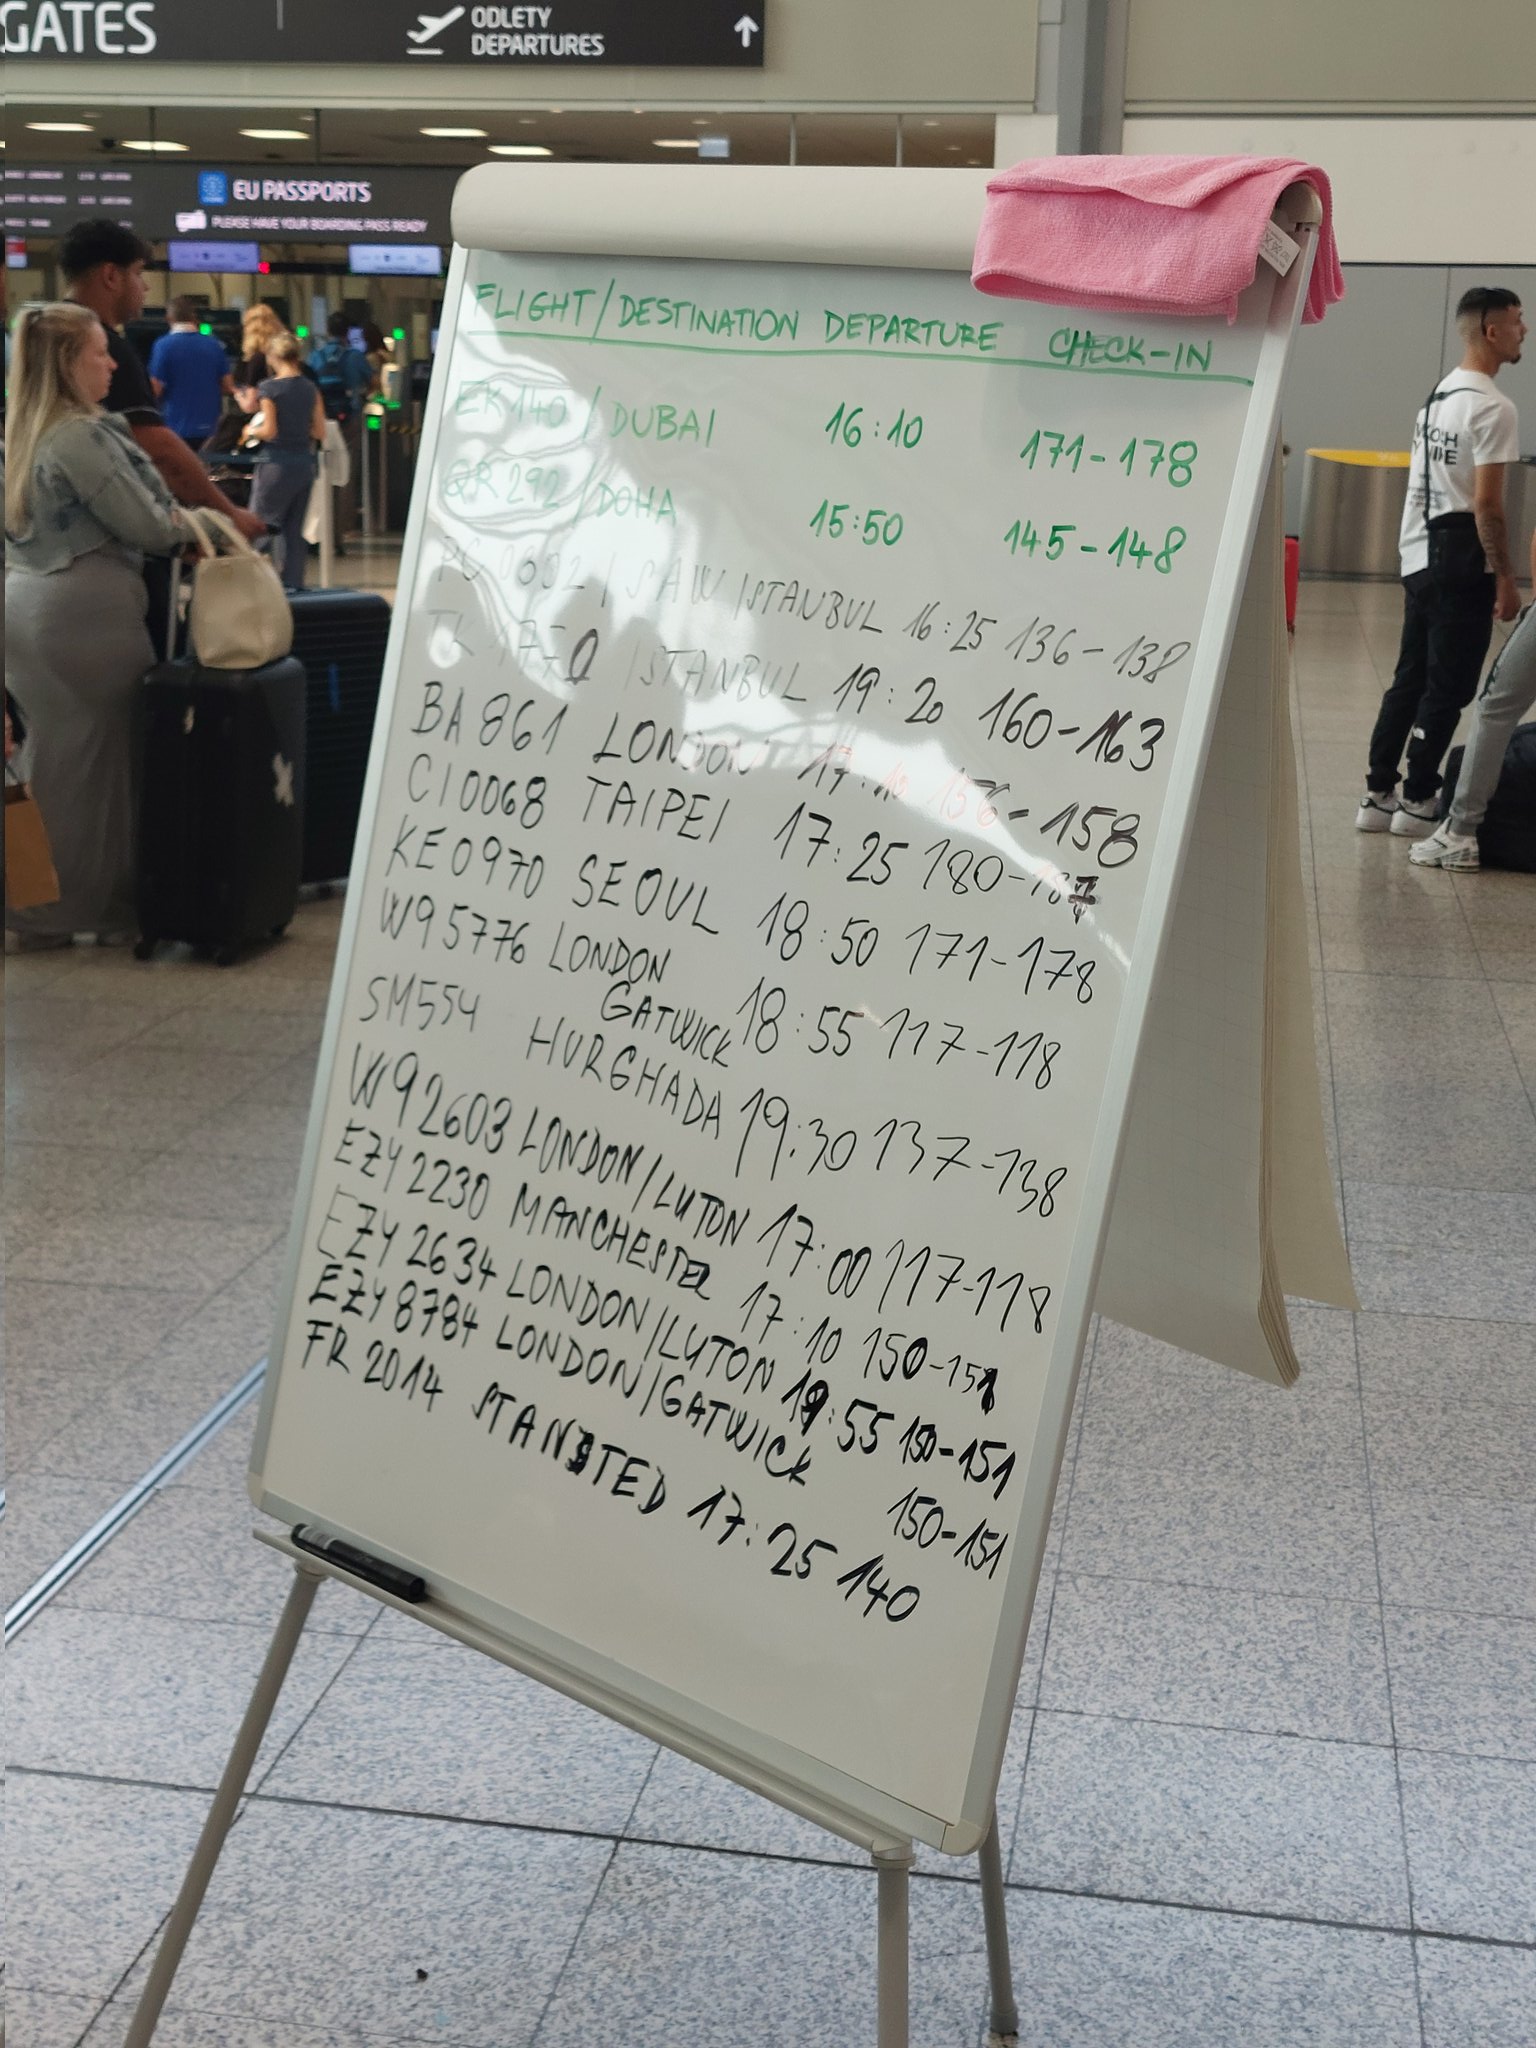 GATES
ODLETY
DEPARTURES
EU PASSPORTS
PLEASE HAVE YOUR BOARDING PASS READY
FLIGHT/DESTINATION DEPARTURE CHECK-IN
EK 140 / DUBAI 16:10 171-178
QR 292 / DOHA 15:50 145-148
PC 0692 / SAW ISTANBUL 16:25 136-138
TK 1770 ISTANBUL 19:20 160-163
BA 861 LONDON 17:10 156-158
CI0068 TAIPEI 17:25 180-187
KE0970 SEOUL 18:50 171-178
W95776 LONDON
GATWICK 18:55 117-118
SM554 HURGHADA 19:30 137-138
W92603 LONDON/LUTON 17:00 117-118
EZY 2230 MANCHESTER 17:10 150-151
EZY 2634 LONDON/LUTON 19:55 150-151
EZY 8784 LONDON/GATWICK 150-151
FR 2014 STANSTED 17:25 140